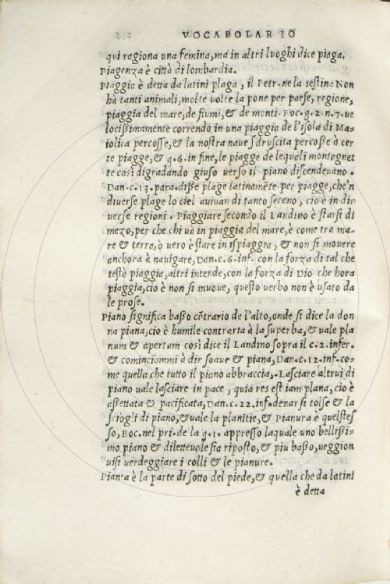 VOCABOLARIO
qui ragiona una femina, ma in altri luoghi dice piaga.
Piagenza è città di lombardia.
Piaggia è detta da latini plaga, il Petr. ne la sestina Non
ha tanti animali, molte volte la pone per paese, regione,
piaggia del mare, de fiumi, & de monti. Boc. g. 2. n. 7. ve
locissimamente correndo in una piaggia de l'isola di Ma
iolica percosse, & la nostra nave sdruscita percosse à cer
te piagge, & g. 6. in fine, le piagge de lequali montagnet
te così digradando giuso verso il piano discendevano.
Dan. c. 13. para. disse plage latinamẽte per piagge, che'n
diverse plage lo ciel avivan di tanto sereno, cio è in di
verse regioni. Piaggiare secondo il Landino è starsi di
mezo, per che chi và in piaggia del mare, è come tra ma-
re & terra, ò vero è stare in ispiaggia, & non si movere
anchora è navigare, Dan. c. 6. inf. con la forza di tal che
testè piaggia, altri intende, con la forza di Dio che hora
piaggia, cio è non si muove, questo verbo non è usato da
le prose.
Piano significa basso cõtrario de l'alto, onde si dice la don
na piana, cio è humile contraria à la superba, & vale pla
num & apertum così dice il Landino sopra il c. 2. infer.
& cominciommi à dir soave & piana, Dan. c. 12. inf. co-
me quella che tutto il piano abbraccia, Lasciare altrui di
piano vale lasciare in pace, quia res est iam plana, cio è
assettata & pacificata, Dan. c. 22. inf. denar si tolse & la
sciogli di piano, & vale la planitie, & Pianura è quelstes
so, Boc. nel pri. de la g. 1. appresso laquale uno bellissi-
mo piano & dilettevole sia riposto, & piu basso, veggion
visi verdeggiare i colli & le pianure.
Pianta è la parte di sotto del piede, & quella che da latini
è detta